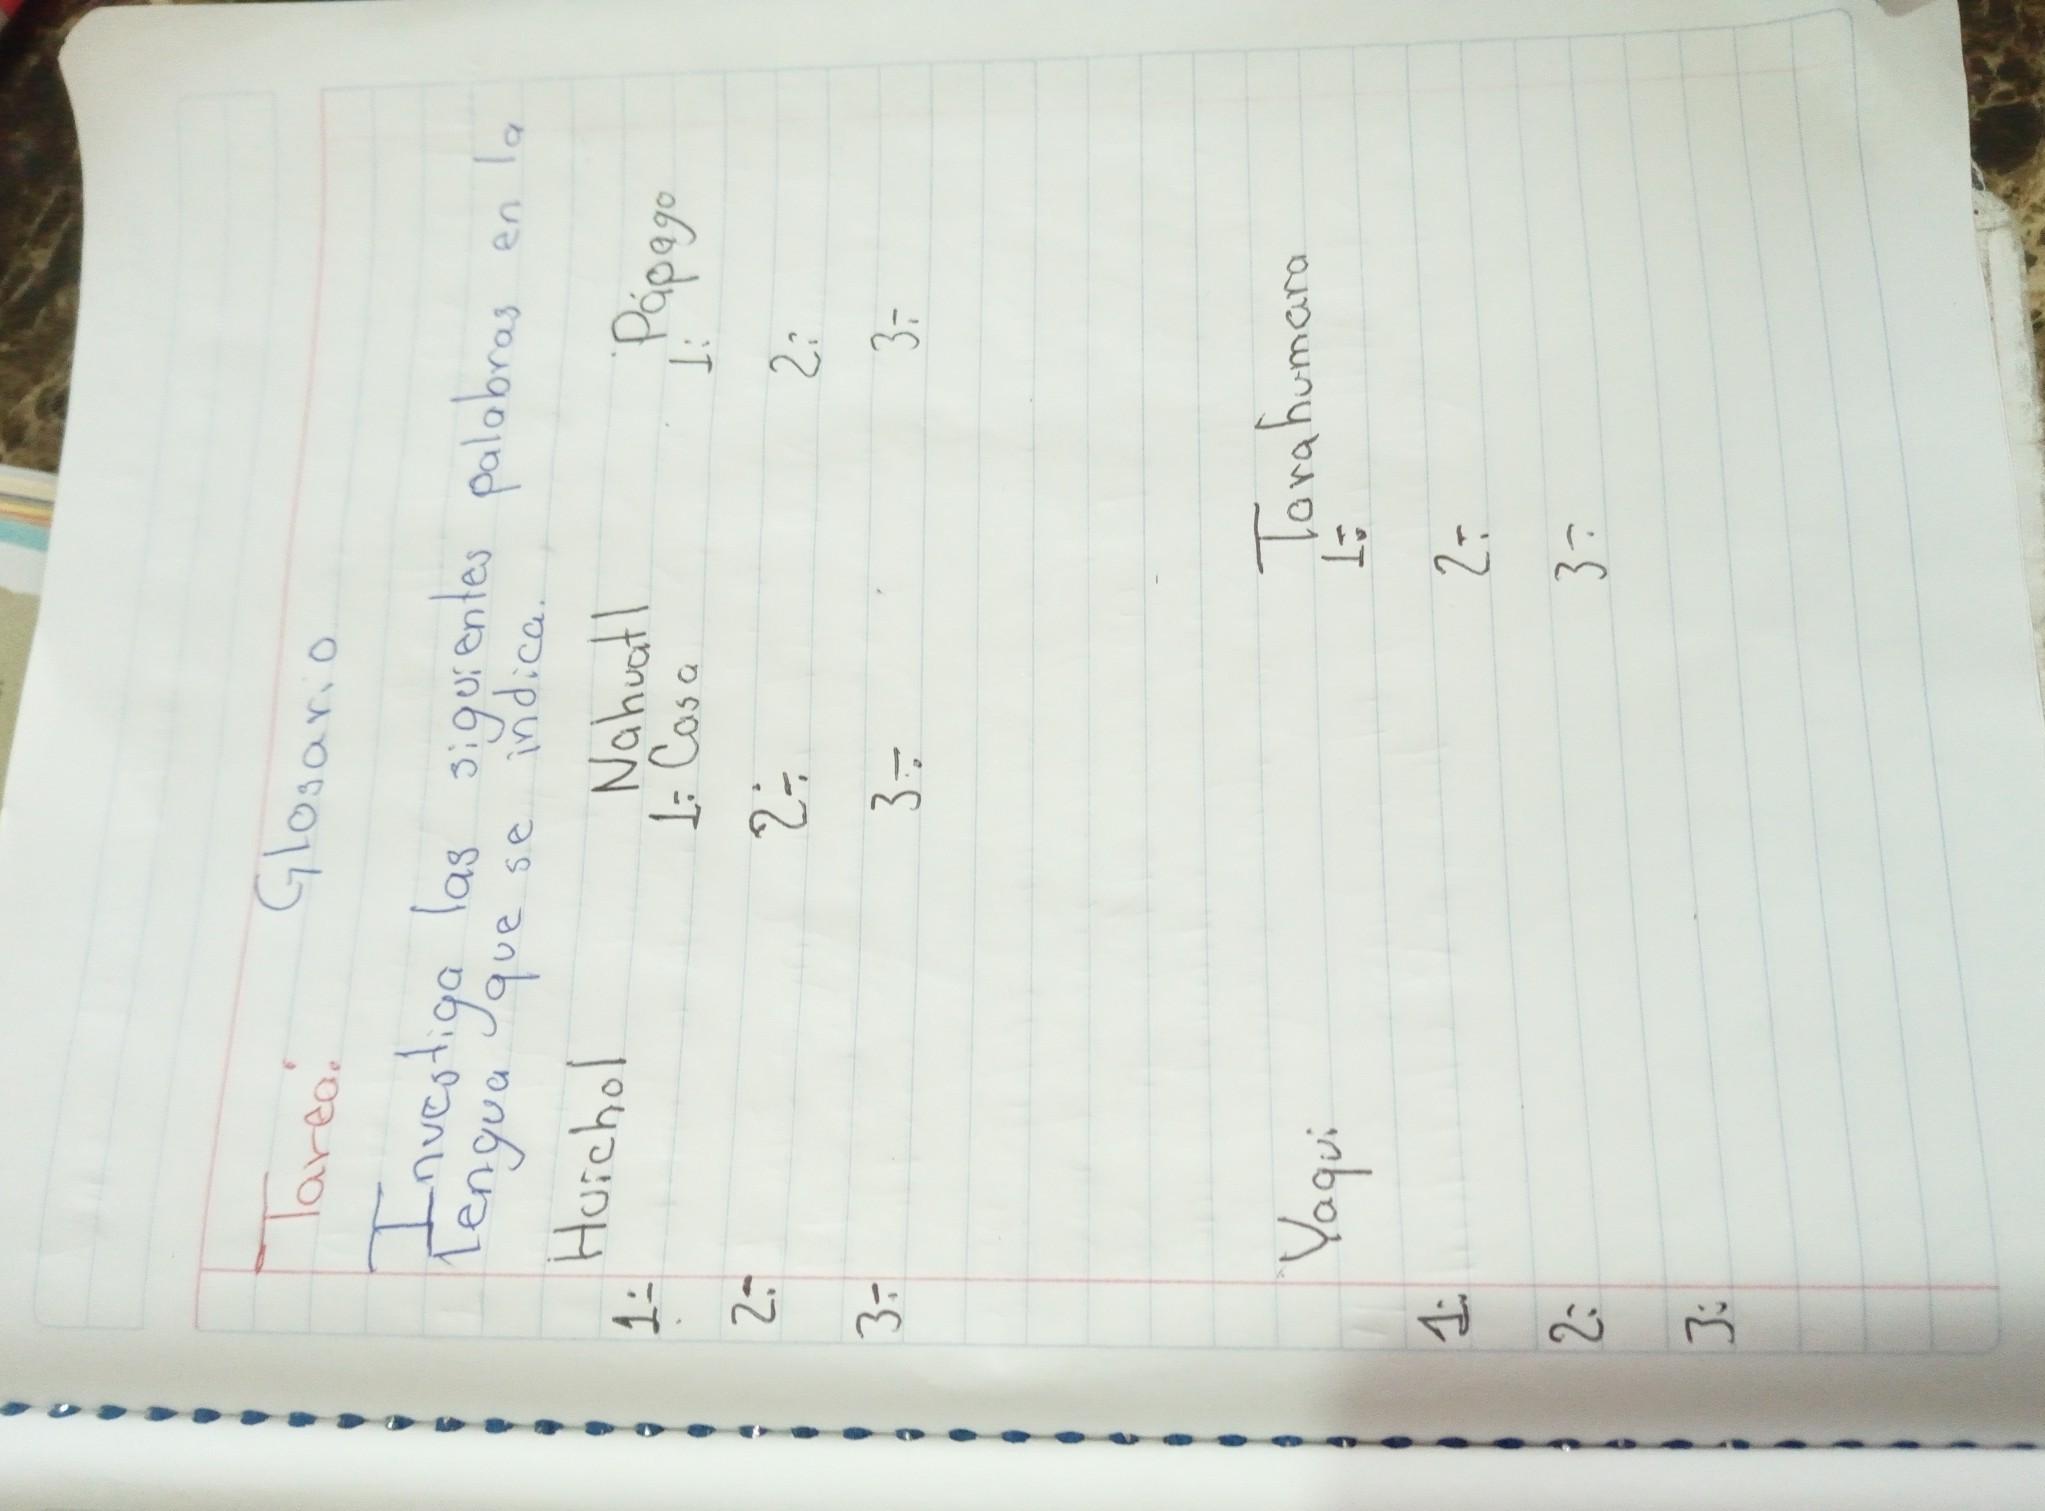 Tarea: Glosario
Investiga las siguientes palabras en la
lengua que se indica.
Huichol Nahuatl Pápago
1.- 1.- Casa 1.-
2.- 2.- 2.-
3.- 3.- 3.-
Yaqui Tarahumara
1.- 1.-
2.- 2.-
3.- 3.-